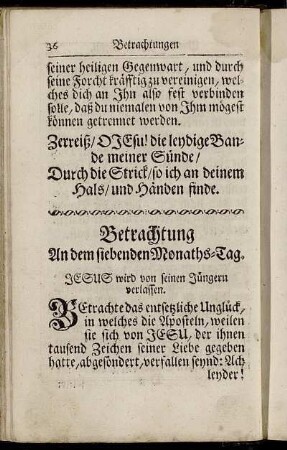 36 Betrachtungen
seiner heiligen Gegenwart, und durch
seine Forcht kräfftig zu vereinigen, wel-
ches dich an Ihn also fest verbinden
solle, daß du niemalen von Ihm mögest
können getrennet werden.
Zerreiß/ O JEsu! die leydige Ban-
de meiner Sünde/
Durch die Strick/ so ich an deinem
Hals/ und Händen finde.
Betrachtung
An dem siebenden Monaths-Tag.
JESUS wird von seinen Jüngern
verlassen.
BEtrachte das entsetzliche Unglück,
in welches die Aposteln, weilen
sie sich von JESU, der ihnen
tausend Zeichen seiner Liebe gegeben
hatte, abgesondert, verfallen seynd: Ach
leyder!